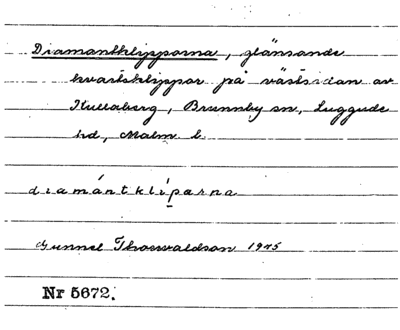 Diamantklipporna, glänsande
kvartsklippor på västsidan av
Kullaberg, Brunnby sn, Luggude
hd, Malm. l.
diamántklíp̱arna
Gunnel Thorvaldson 1945
Nr 5672.